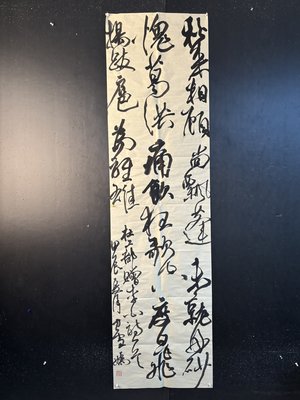 秋來相顧尚飄蓬未就丹砂
愧葛洪痛飲狂歌空度日飛
揚跋扈為誰雄
贈李白詩
甲辰 月